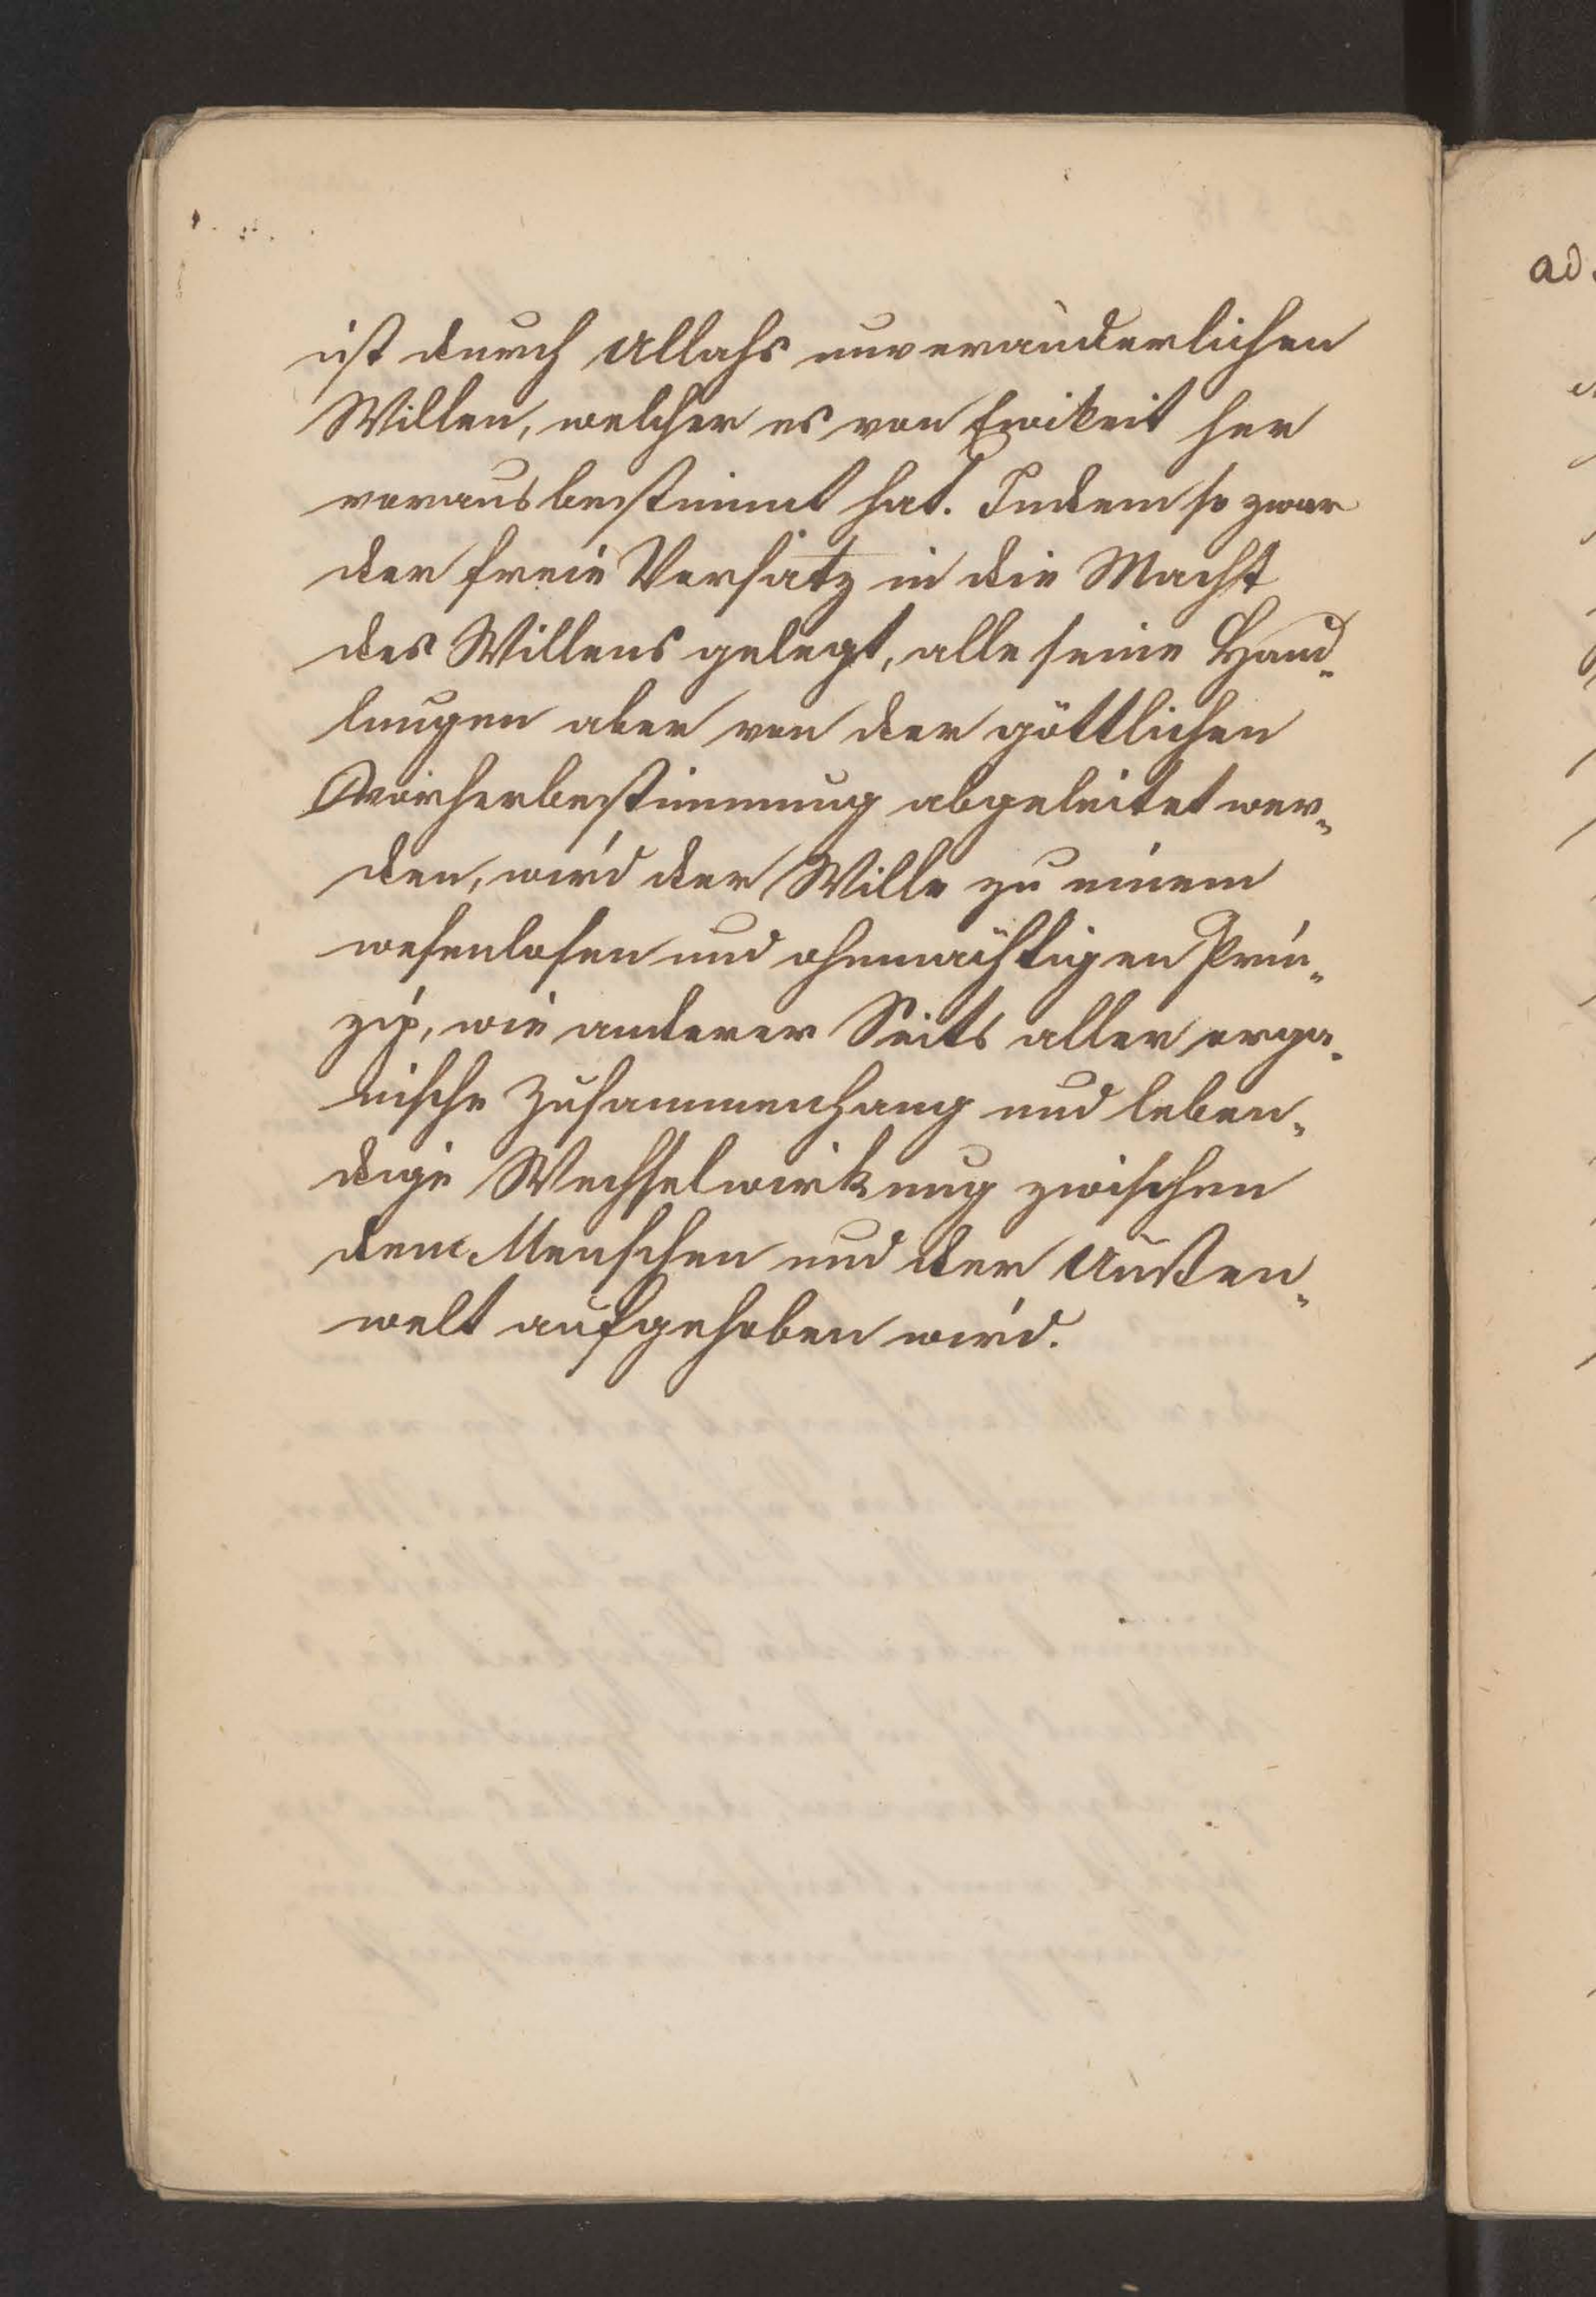 ist durch Allahs unveränderlichen
Willen, welcher es von Ewikeit her
vorausbestimmt hat. Indem so zwar
der freie Vorsatz in die Macht
des Willens gelegt, alle seine Hand„
lungen aber von der göttlichen
Vorherbestimmung abgeleitet wer„
den, wird der Wille zu einem
wesenlosen und ohnmächtigen Prin„
zip, wie anderer Seits aller orga„
nische Zusammenhang und leben„
dige Wechselwirkung zwischen
dem Menschen und der Außen„
welt aufgehoben wird.
ad.